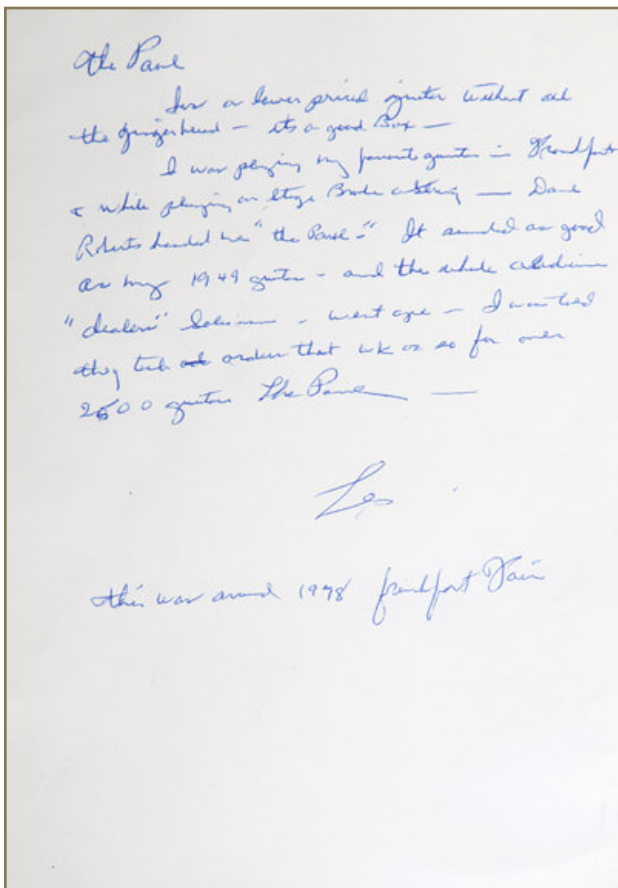 The Paul
For a lower priced guitar without all
the gingerbread – its a good Box –
I was playing my favorite guitar in Frankfort
& while playing on stage Broke a string — Dave
Roberts handed me "the Paul." It sounded as good
as my 1949 guitar - and the whole
"dealers" - went ape - I was told
they took orders that wk or so for over
2500 guitars The Paul —
Les
this was around 1978 frankfort Fair